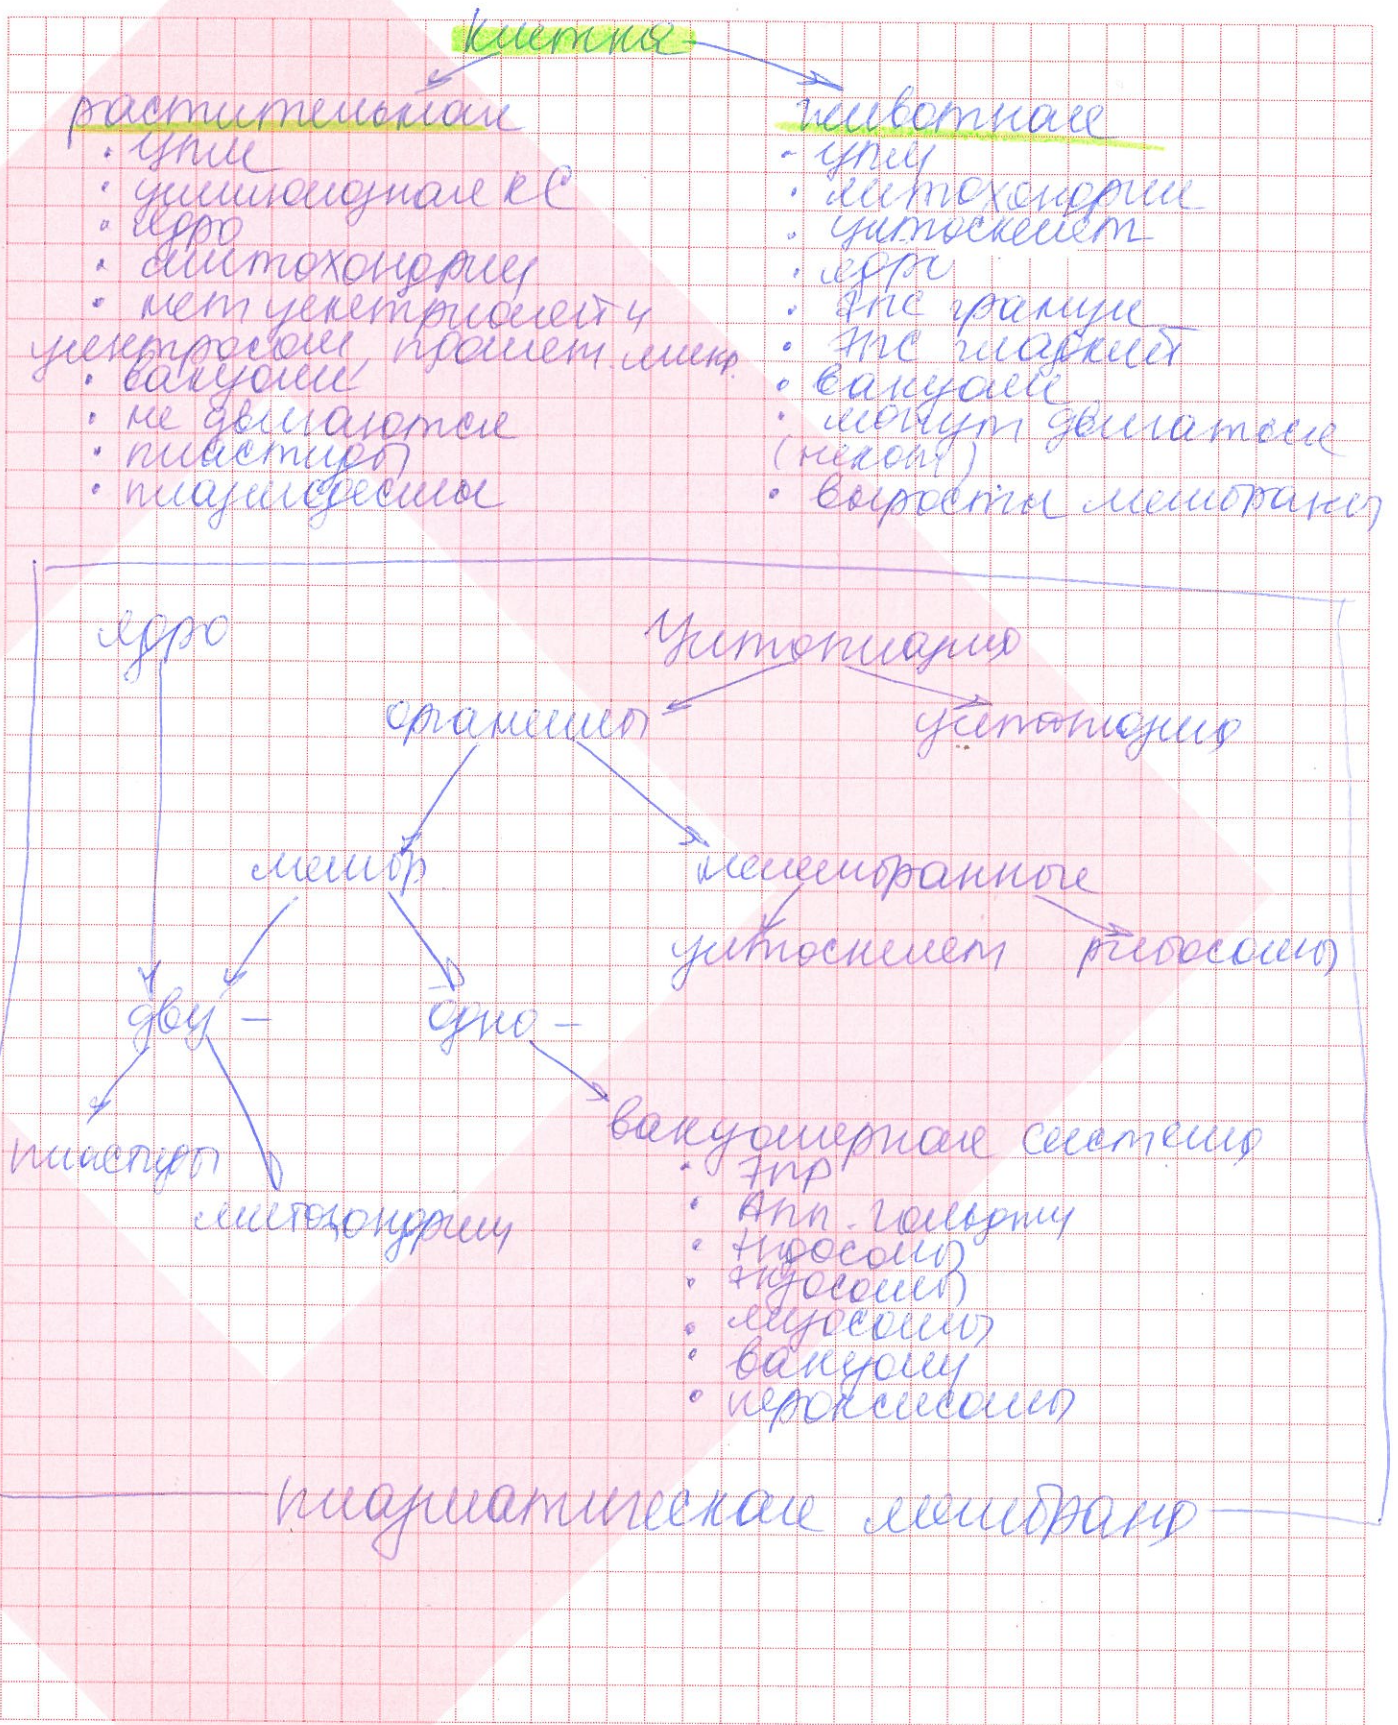 клетка
растительная
животная
· цпм
· целлюлозная КС
· ядро
· митохондрии
· нет центриолей и
центросом, промет. микр.
· вакуоли
· не двигаются
· пластиды
· плазмодесмы
· цпм
· митохондрии
· цитоскелет
· ядро
· ЭПС гранул
· ЭПС гладкий
· вакуоли
· могут двигаться
(некот)
· выросты мембраны
ядро
Цитоплазма
органеллы
цитоплазма
мембр.
немембранные
цитоскелет рибосомы
дву -
одно -
пластиды
митохондрии
вакуолярная система
· ЭПР
· Апп. Гольджи
· эндосомы
· экзосомы
· лизосомы
· вакуоли
· пероксисомы
плазматическая мембрана